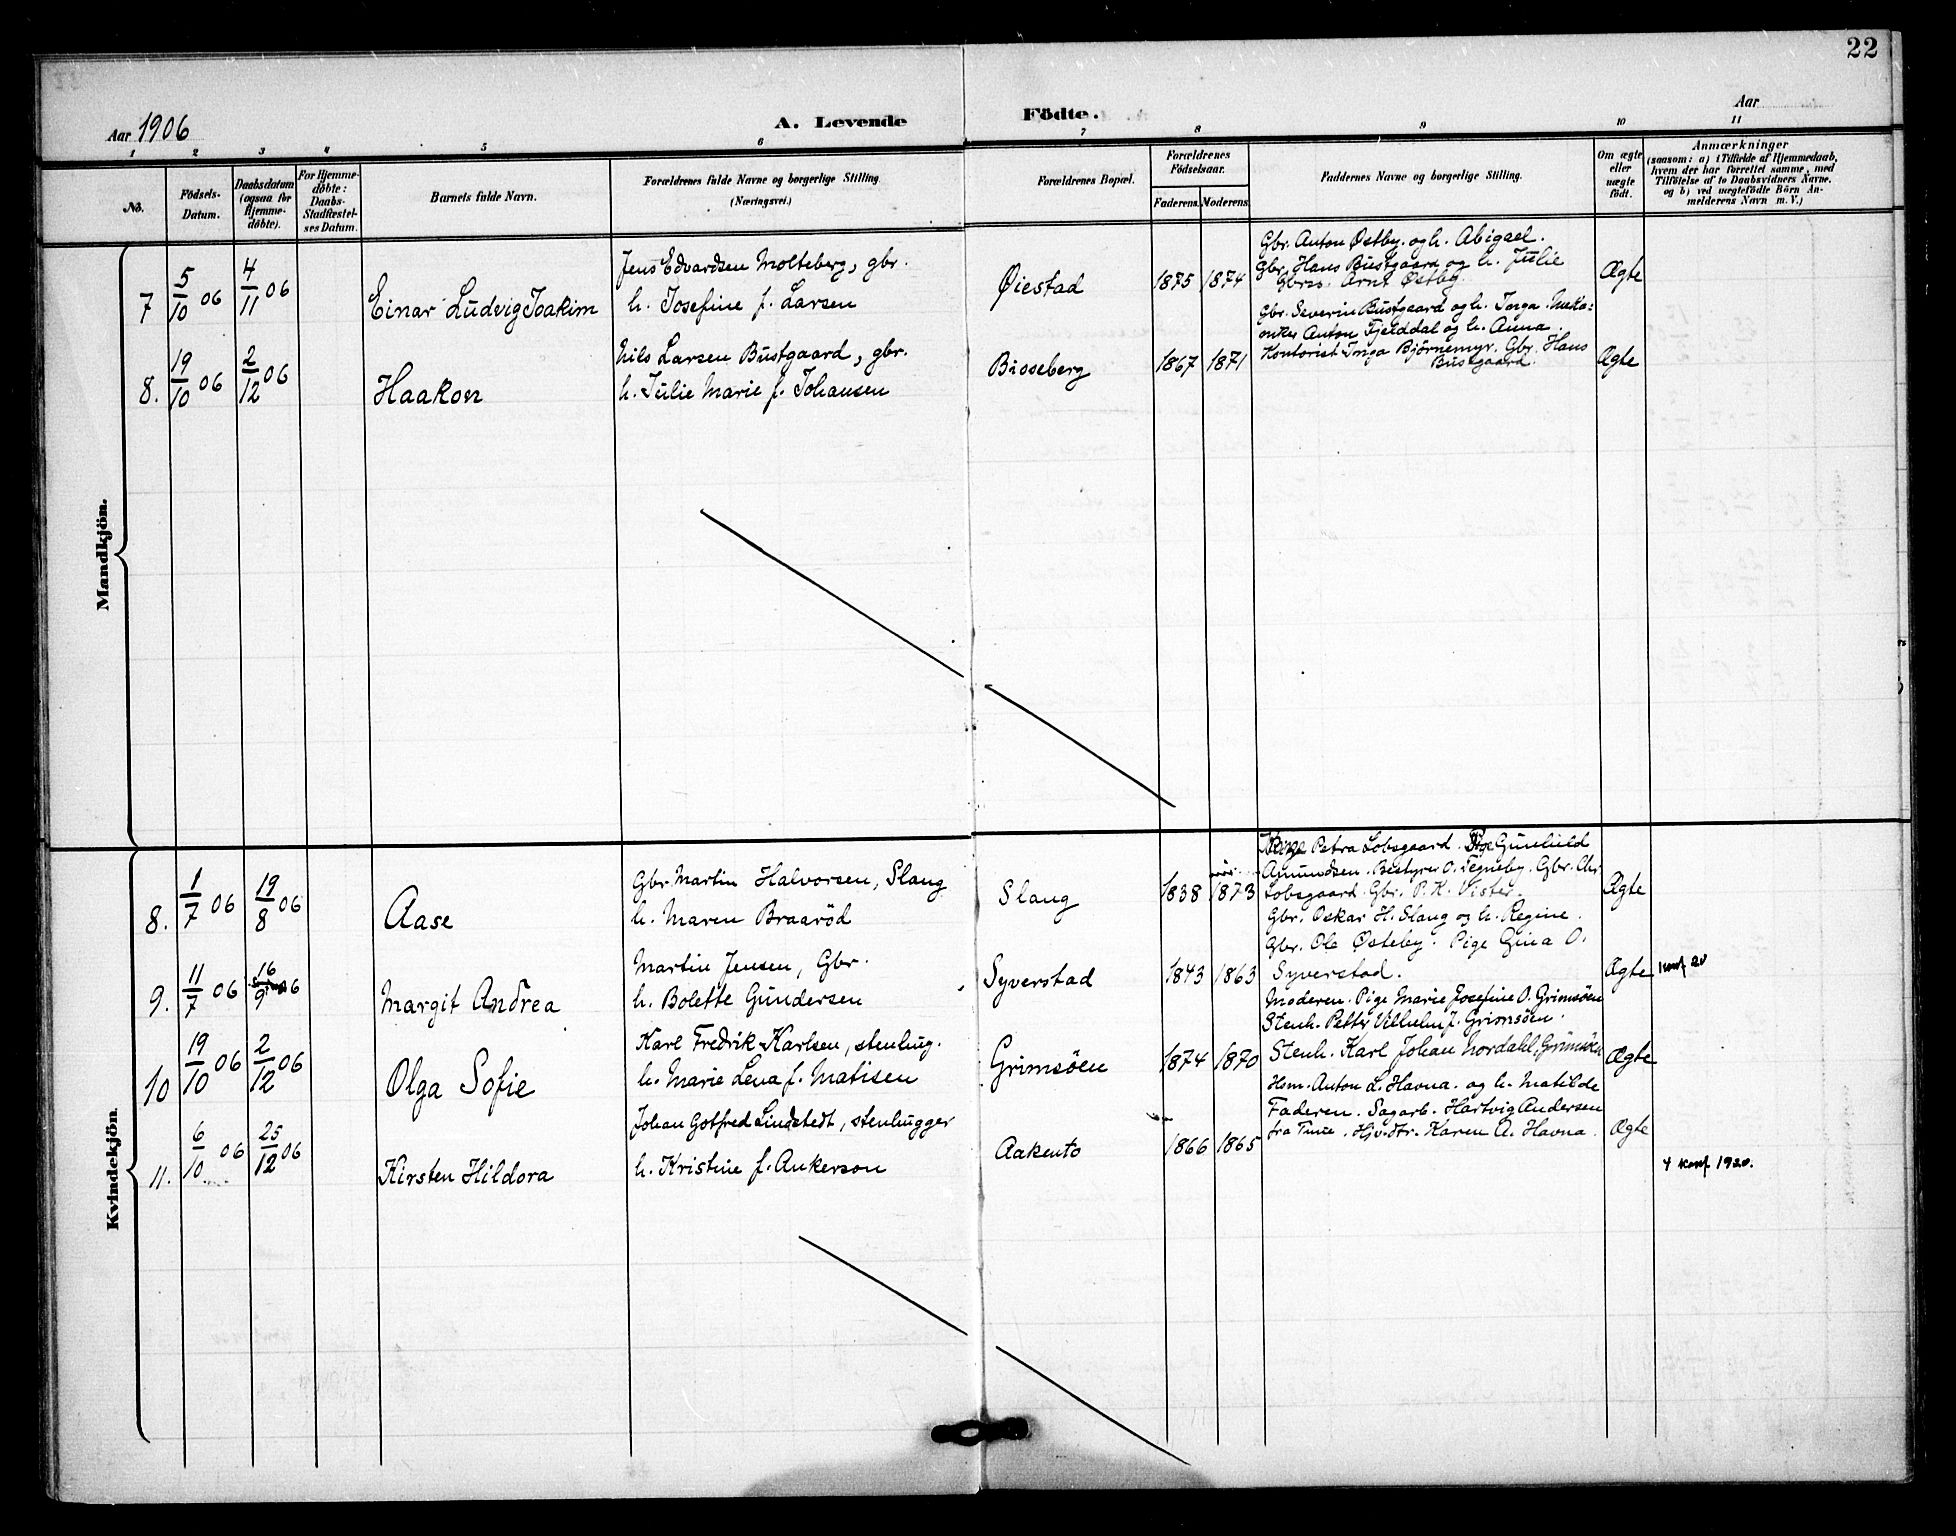 22
Aar 1906
A. Levende Födte.
Aar
1 2 3 4 5 6 7 8 9 10 11
No.
Födsels-
Datum.
Daabsdatum
(ogsaa for
Hjemme-
döbte).
For Hjemme-
döbte:
Daabs-
Stadfæstel-
ses Datum.
Barnets fulde Navn.
Forældrenes fulde Navne og borgerlige Stilling
(Næringsvei.)
Forældrenes Bopæl.
Forældrenes
Födselsaar.
Faderens. Moderens.
Faddernes Navne og borgerlige Stilling.
Om ægte
eller
uægte
født.
Anmærkninger
(saasom: a) i Tilfælde af Hjemmedaab,
hvem der har forrettet samme, med
Tilföielse af to Daabsvidners Navne,
og b) ved uægtefödte Börn An-
melderens Navn m. V.)
Mandkjön.
7
5/10 06
4/11 06
Einar Ludvig Joakim
Jens Edvardsen Molteberg, gbr.
h. Josefine f. Larsen
Øiestad
1875 1874
Gbr. Anton Østby. og h. Abigael.
Gbr. Hans Bustgaard og h. Julie
Gbrs. Arnt Østby.
Ægte
8.
19/10 06
2/12 06
Haakon
Nils Larsen Bustgaard, gbr.
h. Julie Marie f. Johansen
Bisseberg
1867 1871
Gbr. Severin Bustgaard og h. Inga. Meka-
niker Anton Fjelddal og h. Anna.
Kontorist Inga Björnemyr. Gbr. Hans
Bustgaard.
Ægte
Kvindekjön.
8.
1/7 06
19/8 06
Aase
Gbr. Martin Halvorsen, Slang
h. Maren Braaröd
Slang
1838 1873
Petra Lobsgaard. Pige Gunhild
Amundsen. Bestyrer O. Tegneby. Gbr. Chr.
Lobsgaard. Gbr. P. K. Vister.
Gbr. Oskar H. Slang og h. Regine.
Ægte
9.
11/7 06
16/9 06
Margit Andrea
Martin Jensen, Gbr.
h. Bolette Gundersen
Syverstad
1843 1863
Gbr. Ole Østeby. Pige Gina O.
Syverstad.
Ægte
konf 20
10
19/10 06
2/12 06
Olga Sofie
Karl Fredrik Karlsen, stenhug.
h. Marie Lena f. Matisen
Grimsöen
1874 1870
Moderen. Pige Marie Josefine O. Grimsöen
Stenh. Petter Vilhelm J. Grimsöen.
Stenh. Karl Johan Nordahl, Grimsöen
Ægte
11.
6/10 06
25/12 06
Kirsten Hildora
Johan Gotfred Lindstedt, stenhugger
h. Kristine f. Ankerson
Aakento
1866 1865
Hsm. Anton L. Havna. og h. Matilde
Faderen. Sagarb. Hartvig Andersen
fra Tune. Hjv. dtr. Karen A. Havna.
Ægte
konf 1920.